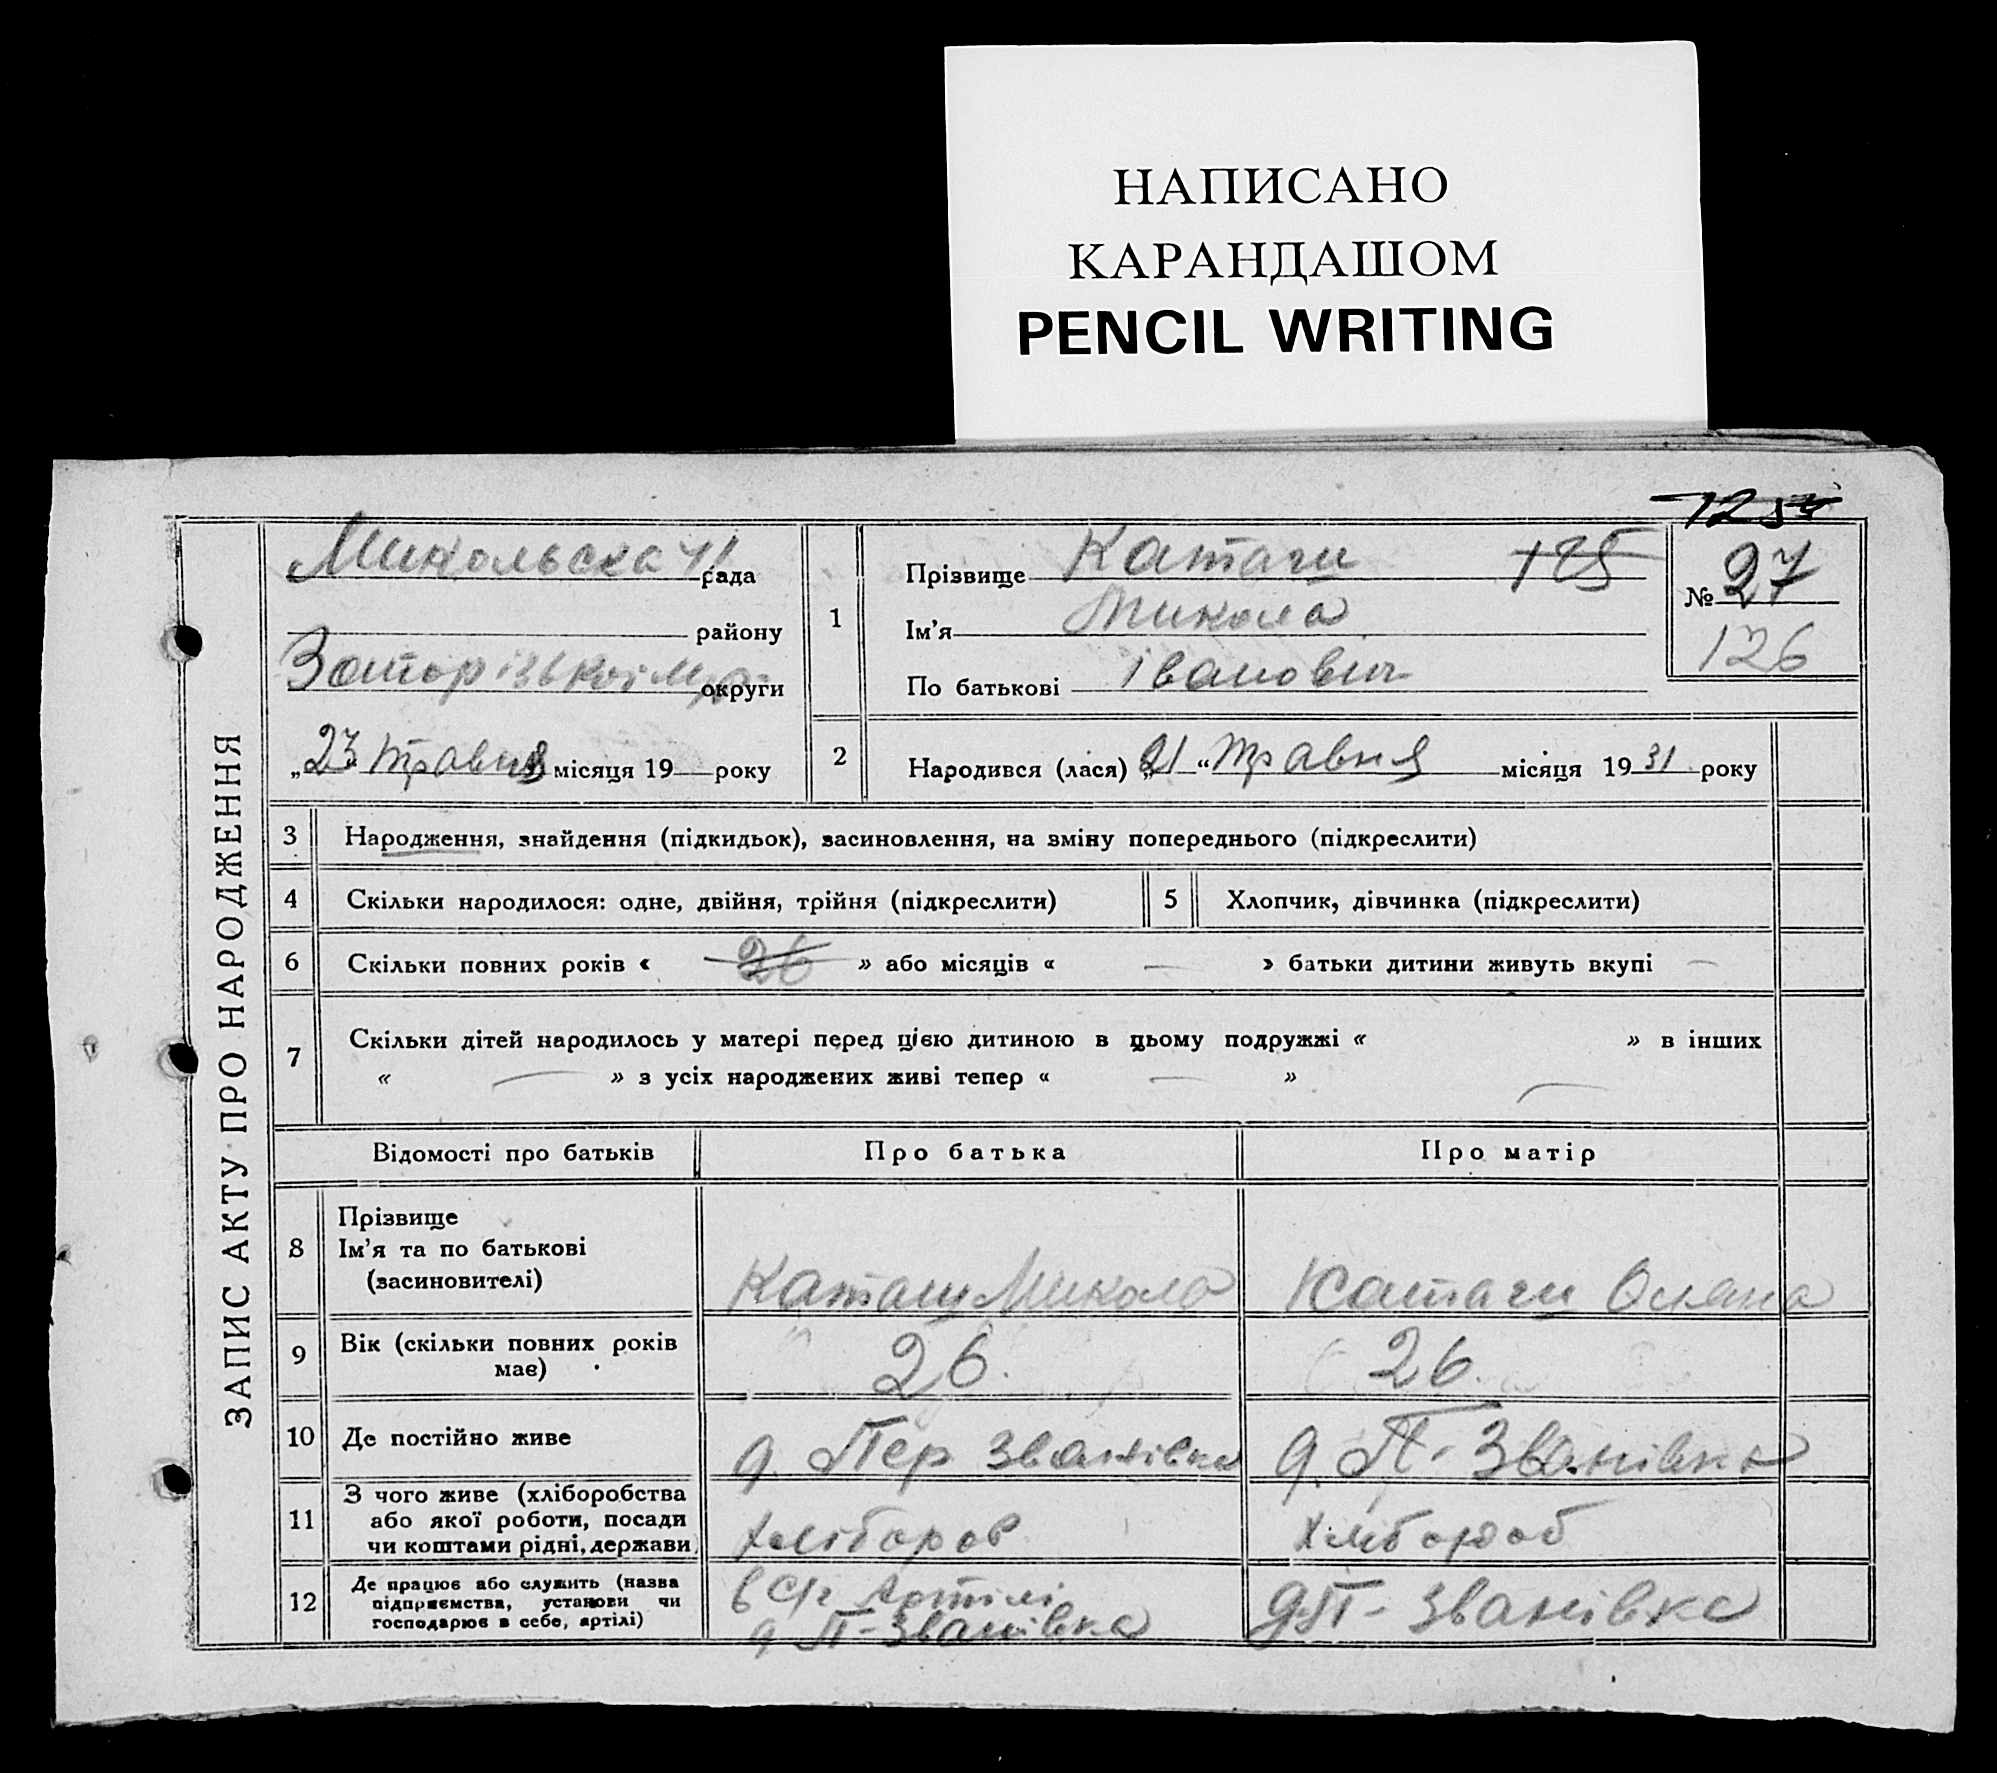 НАПИСАНО
КАРАНДАШОМ
PENCIL WRITING
ЗАПИС АКТУ ПРО НАРОДЖЕННЯ
Микольска рада
району
округи
„23“ травня місяця 19 року
1 Прізвище Катаги 125
Ім'я Микола
По батькові Іванович
№ 27
126
2 Народився (лася) „21“ травня місяця 1931 року
3 Народження, знайдення (підкидьок), засиновлення, на зміну попереднього (підкреслити)
4 Скільки народилося: одне, двійня, трійня (підкреслити) 5 Хлопчик, дівчинка (підкреслити)
6 Скільки повних років « 26 » або місяців « — » батьки дитини живуть вкупі —
7 Скільки дітей народилось у матері перед цією дитиною в цьому подружжі « » в інших
« — » з усіх народжених живі тепер « — » —
Відомості про батьків Про батька Про матір
8 Прізвище
Ім'я та по батькові
(засиновителі)
Катаги Микола Катаги Оляна
9 Вік (скільки повних років має) 26. 26.
10 Де постійно живе д. Пер Званівка д. П-Званівка
11 З чого живе (хліборобства
або якої роботи, посади
чи коштами рідні, держави
хлібороб Хлібороб
12 Де працює або служить (назва
підприємства, установи чи
господарює в себе, артілі)
в с/г Артілі
д П-Званівка д.П-Званівка